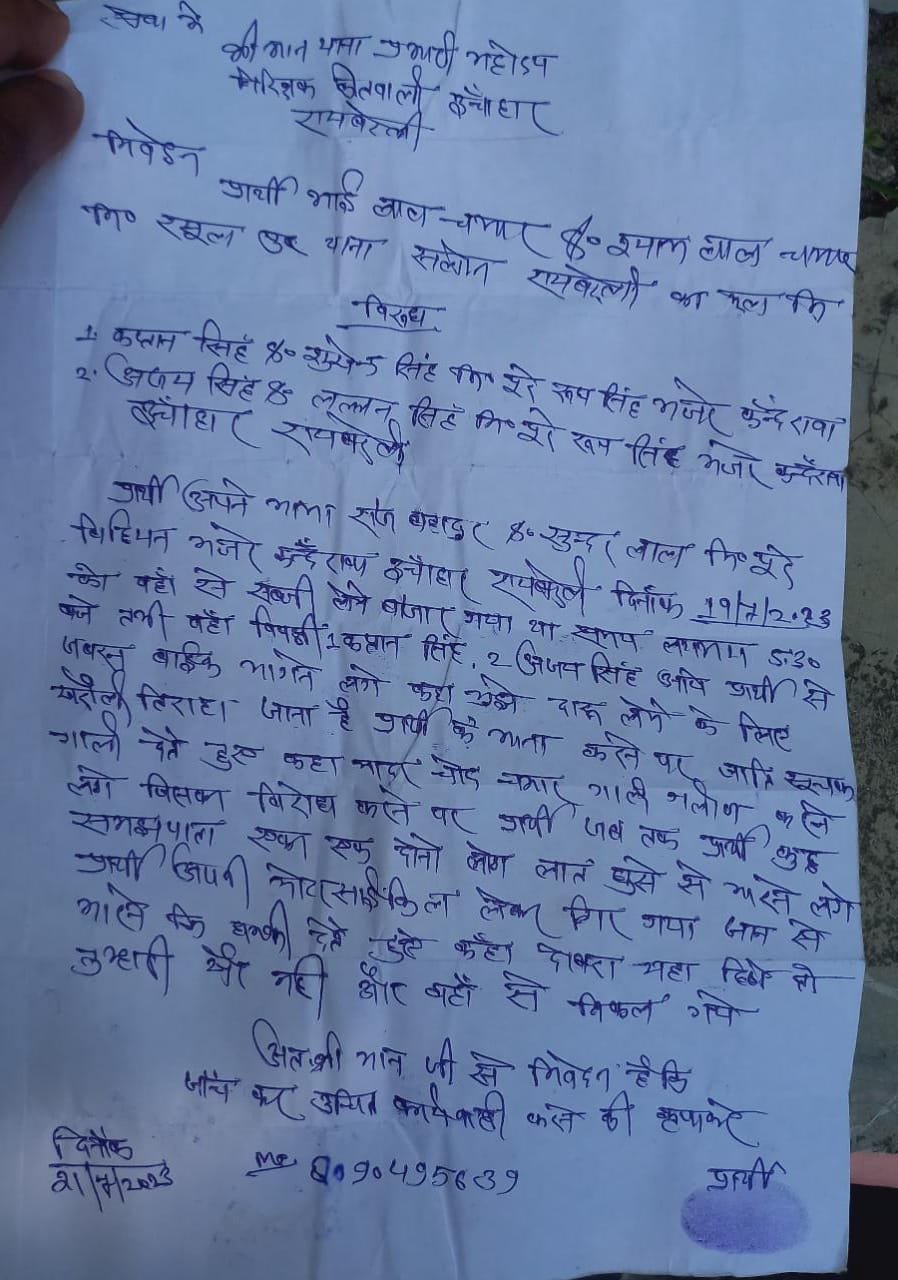 सेवा में
श्री मान थाना प्रभारी महोदय
निरिक्षक कोतवाली ऊँचाहार
रायबरेली
निवेदन
प्रार्थी भाई लाल चमार S/० श्याम लाल चमार
नि० रसूल पुर थाना सलोन रायबरेली का मूल कि
विरुध
1. कप्तान सिहँ S/० सिंह नि० पूरे रूप सिंह मजरे कन्दरावा
2. अजय सिंह S/० लल्लन सिहँ नि० पूरे रूप सिंह मजरे कन्दरावा
ऊँचाहार रायबरेली
प्रार्थी अपने मामा राज बहादुर S/० सुन्दर लाल नि० पूरे
मजरे कन्दरावा ऊँचाहार रायबरेली दिनाँक 19/7/2023
को वहाँ से सब्जी लेने बाजार गया था समय लगभग 5:30
बजे तभी वहाँ विपक्षी 1 कप्तान सिंह, 2 अजय सिंह आये प्रार्थी से
जबरन बाईक मागने लगे कहा मुझे दारू लेने के लिए
तिराहा जाना है प्रार्थी के मना करने पर जाति सूचक
गाली देते हुए कहा मादर चोद चमार गाली गलौज करने
लगे जिसका विरोध करने पर प्रार्थी जब तक प्रार्थी कुछ
समझ पाता दोनो लोग लात घुसे से मारने लगे
प्रार्थी अपनी मोटरसाईकिल लेकर गिर गया जान से
मारने कि धमकी देते हुऐ कहाँ दोबारा यहा दिखे तो
तुम्हारी खैर नही और वहाँ से निकल गये
अतः श्री मान जी से निवेदन है कि
जाँच कर उचित कार्यवाही करने की कृपा करे
दिनाँक
21/7/2023 Mo 8090495639 प्रार्थी